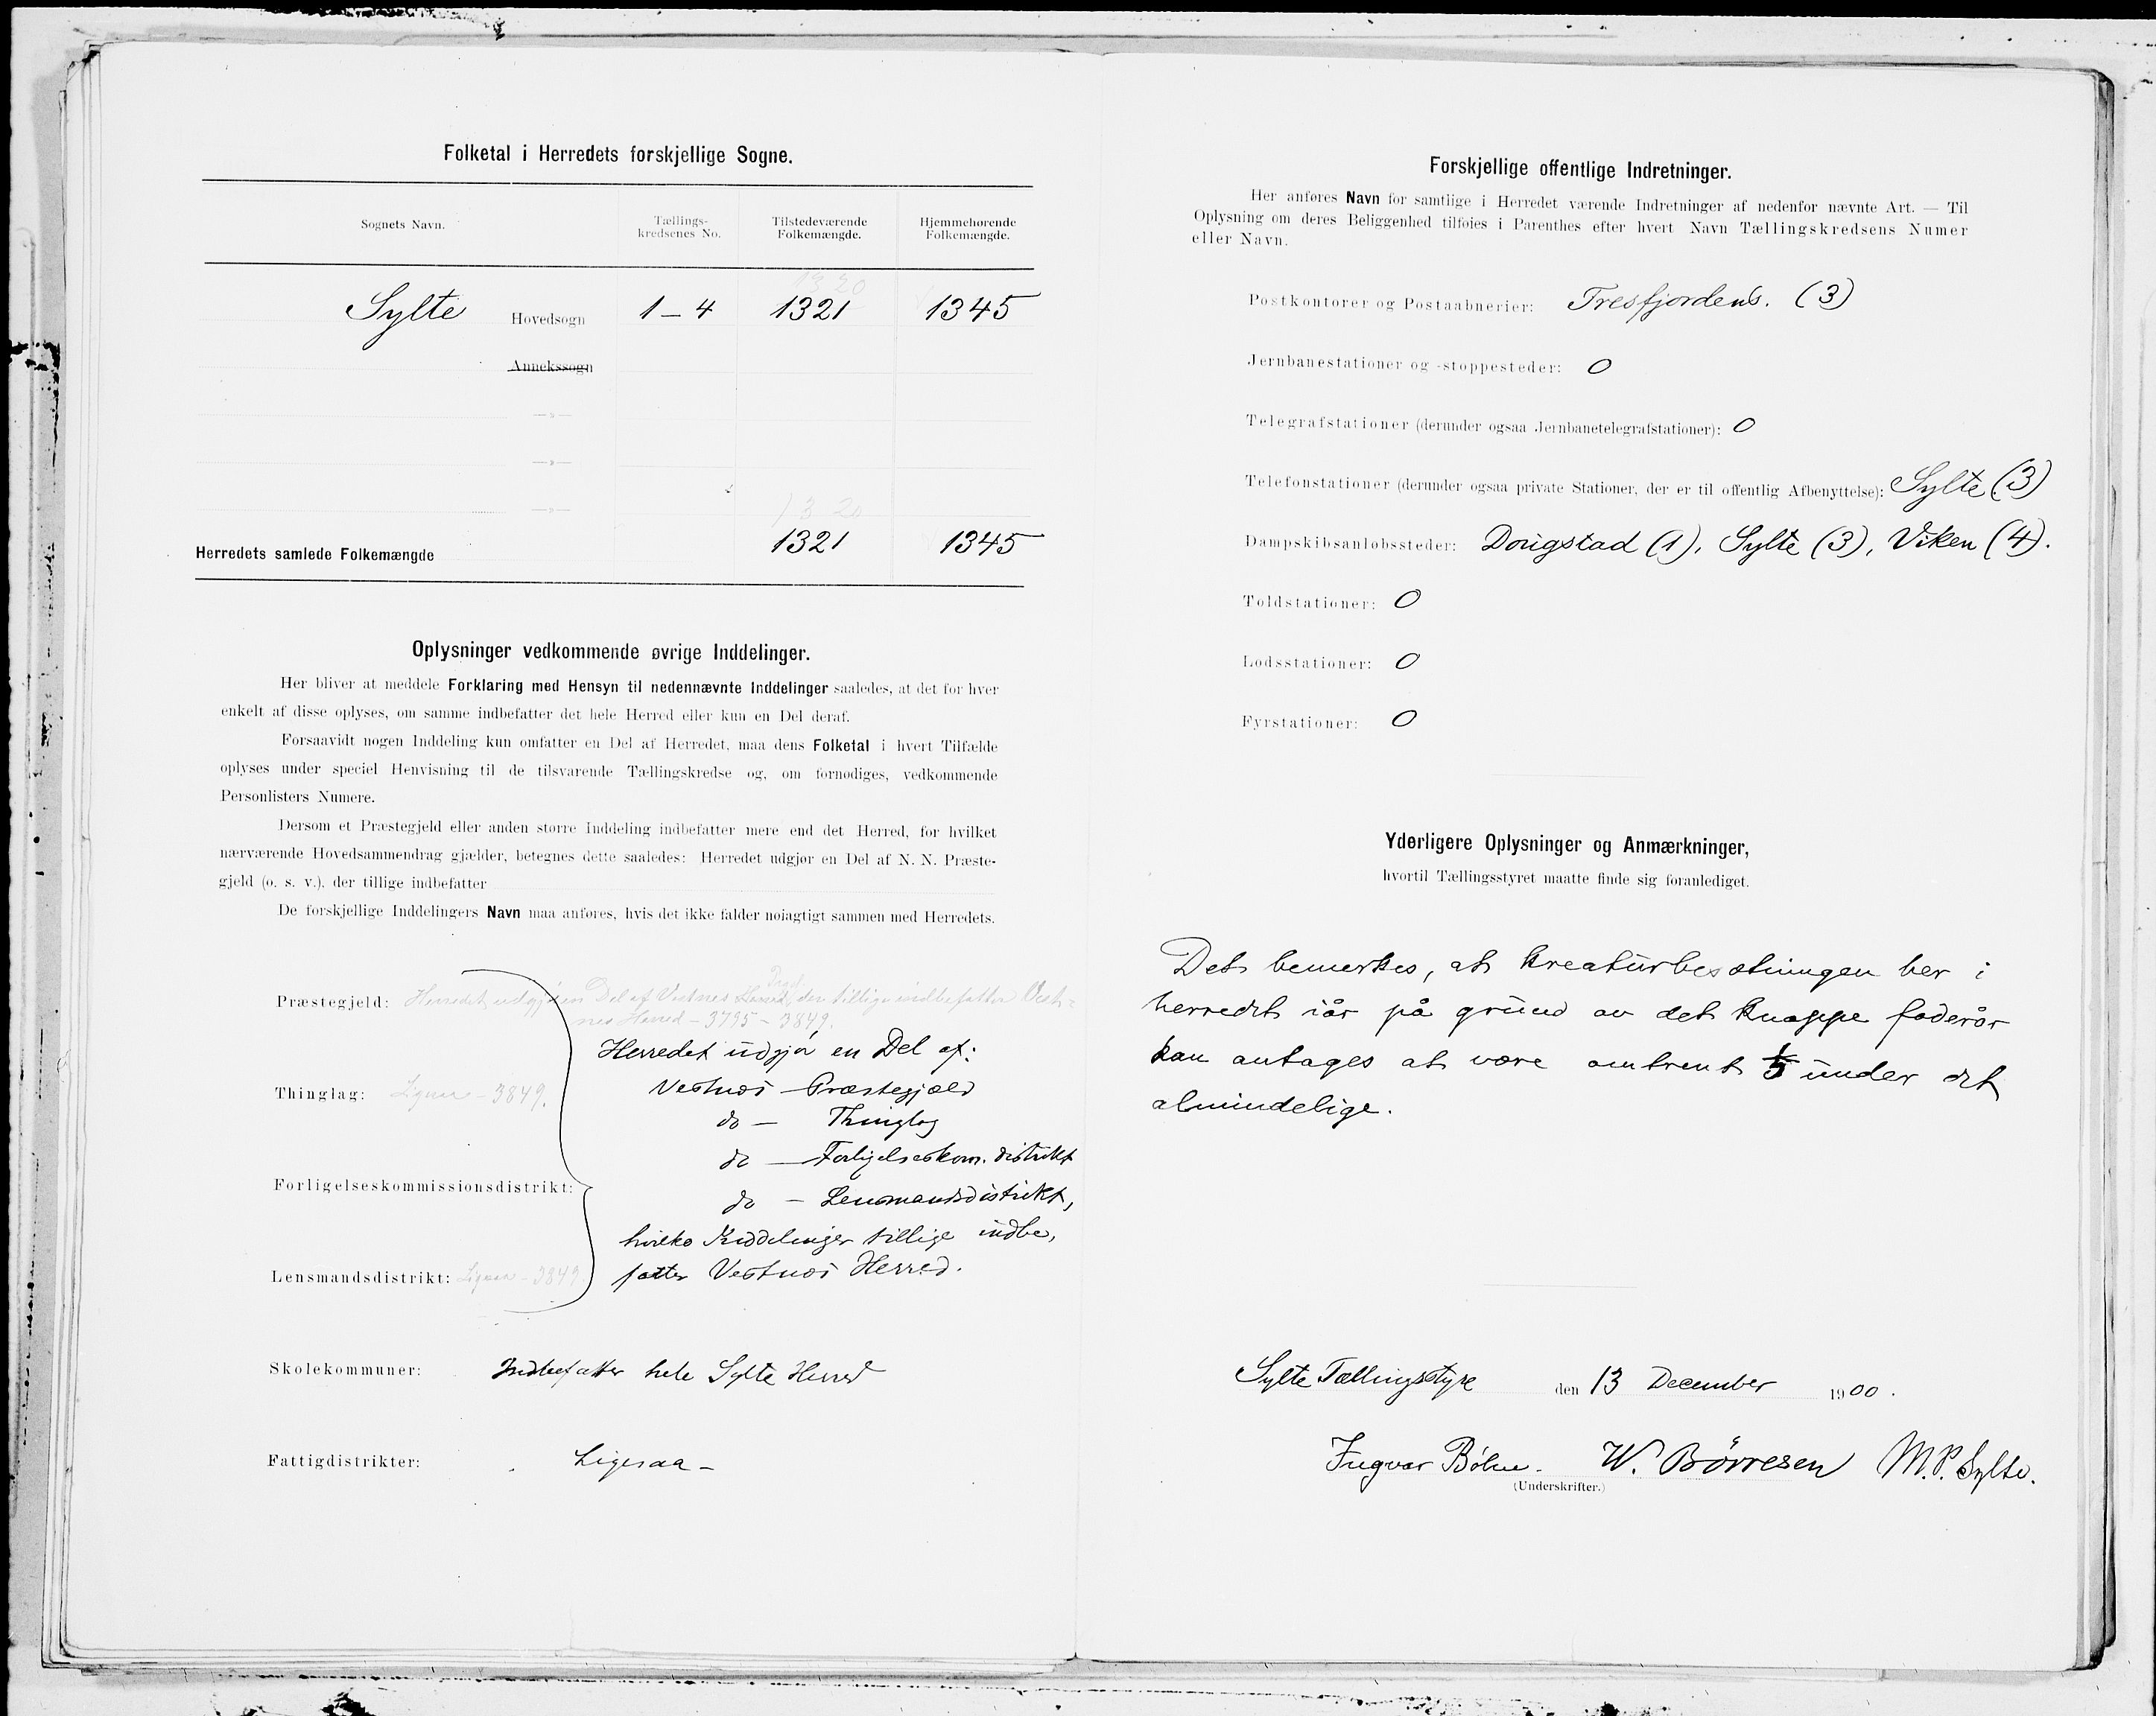 Folketal i Herredets forskjellige Sogne.
Sognets Navn.
Tællings-
kredsenes No.
Tilstedeværende
Folkemængde.
Hjemmehørende
Folkemængde.
1320
Sylte Hovedsogn 1–4 1321 1345
Annekssogn
—»—
—»—
—»—
1320
Herredets samlede Folkemængde 1321 1345
Oplysninger vedkommende øvrige Inddelinger.
Her bliver at meddele Forklaring med Hensyn til nedennævnte Inddelinger saaledes, at det for hver
enkelt af disse oplyses, om samme indbefatter det hele Herred eller kun en Del deraf.
Forsaavidt nogen Inddeling kun omfatter en Del af Herredet, maa dens Folketal i hvert Tilfælde
oplyses under speciel Henvisning til de tilsvarende Tællingskredse og, om fornødiges, vedkommende
Personlisters Numere.
Dersom et Præstegjeld eller anden større Inddeling indbefatter mere end det Herred, for hvilket
nærværende Hovedsammendrag gjælder, betegnes dette saaledes: Herredet udgjør en Del af N. N. Præste-
gjeld (o. s. v.), der tillige indbefatter
De forskjellige Inddelingers Navn maa anføres, hvis det ikke falder nøiagtigt sammen med Herredets.
Præstegjeld: Herredet udgjør en Del af Vestnes Herred, der tillige indbefatter Vest-
nes Herred – 3795 – 3849.
Herredet udgjør en Del af:
Vestnes – Præstegjæld
Thinglag: – 3849.
do – Thinglag
do – Forligelseskom. distrikt
Forligelseskommissionsdistrikt:
do – Lensmandsdistrikt,
hvilke Inddelinger tillige indbe-
Lensmandsdistrikt: – 3849. fatter Vestnes Herred.
Skolekommuner: Indbefatter hele Sylte Herred
Fattigdistrikter: Ligesaa –
Forskjellige offentlige Indretninger.
Her anføres Navn for samtlige i Herredet værende Indretninger af nedenfor nævnte Art. — Til
Oplysning om deres Beliggenhed tilføies i Parenthes efter hvert Navn Tællingskredsens Numer
eller Navn.
Postkontorer og Postaabnerier: Tresfjordens. (3)
Jernbanestationer og -stoppesteder: 0
Telegrafstationer (derunder ogsaa Jernbanetelegrafstationer): 0
Telefonstationer (derunder ogsaa private Stationer, der er til offentlig Afbenyttelse): Sylte (3)
Dampskibsanløbssteder: Dougstad (1), Sylte (3), Viken (4).
Toldstationer: 0
Lodsstationer: 0
Fyrstationer: 0
Yderligere Oplysninger og Anmærkninger,
hvortil Tællingsstyret maatte finde sig foranlediget.
Det bemerkes, at kreaturbesætningen her i
herredet iår på grund av det knappe foderår
kan antages at være omtrent 1/5 under det
almindelige.
Sylte Tællingsstyre den 13 December 1900.
Ingvar Bøhn. W. Börresen M. P. Sylte.
(Underskrifter.)